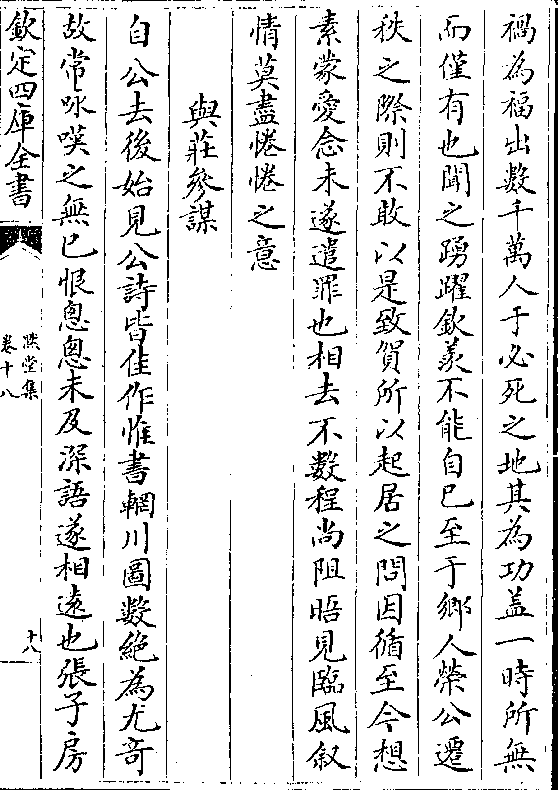 禍為福出數千萬人于必死之地其為功蓋一時所無
而僅有也聞之踴躍欽羨不能自已至于鄉人榮公遷
秩之際則不敢以是致賀所以起居之問因循至今想
素蒙愛念未遂遣罪也相去不數程尚阻晤見臨風叙
情莫盡惓惓之意
與莊參謀
自公去後始見公詩皆佳作惟書輞川圖數絶為尤竒
故常咏嘆之無已恨怱怱未及深語遂相遠也張子房
欽定四庫全書
陵堂集
卷十八
十八